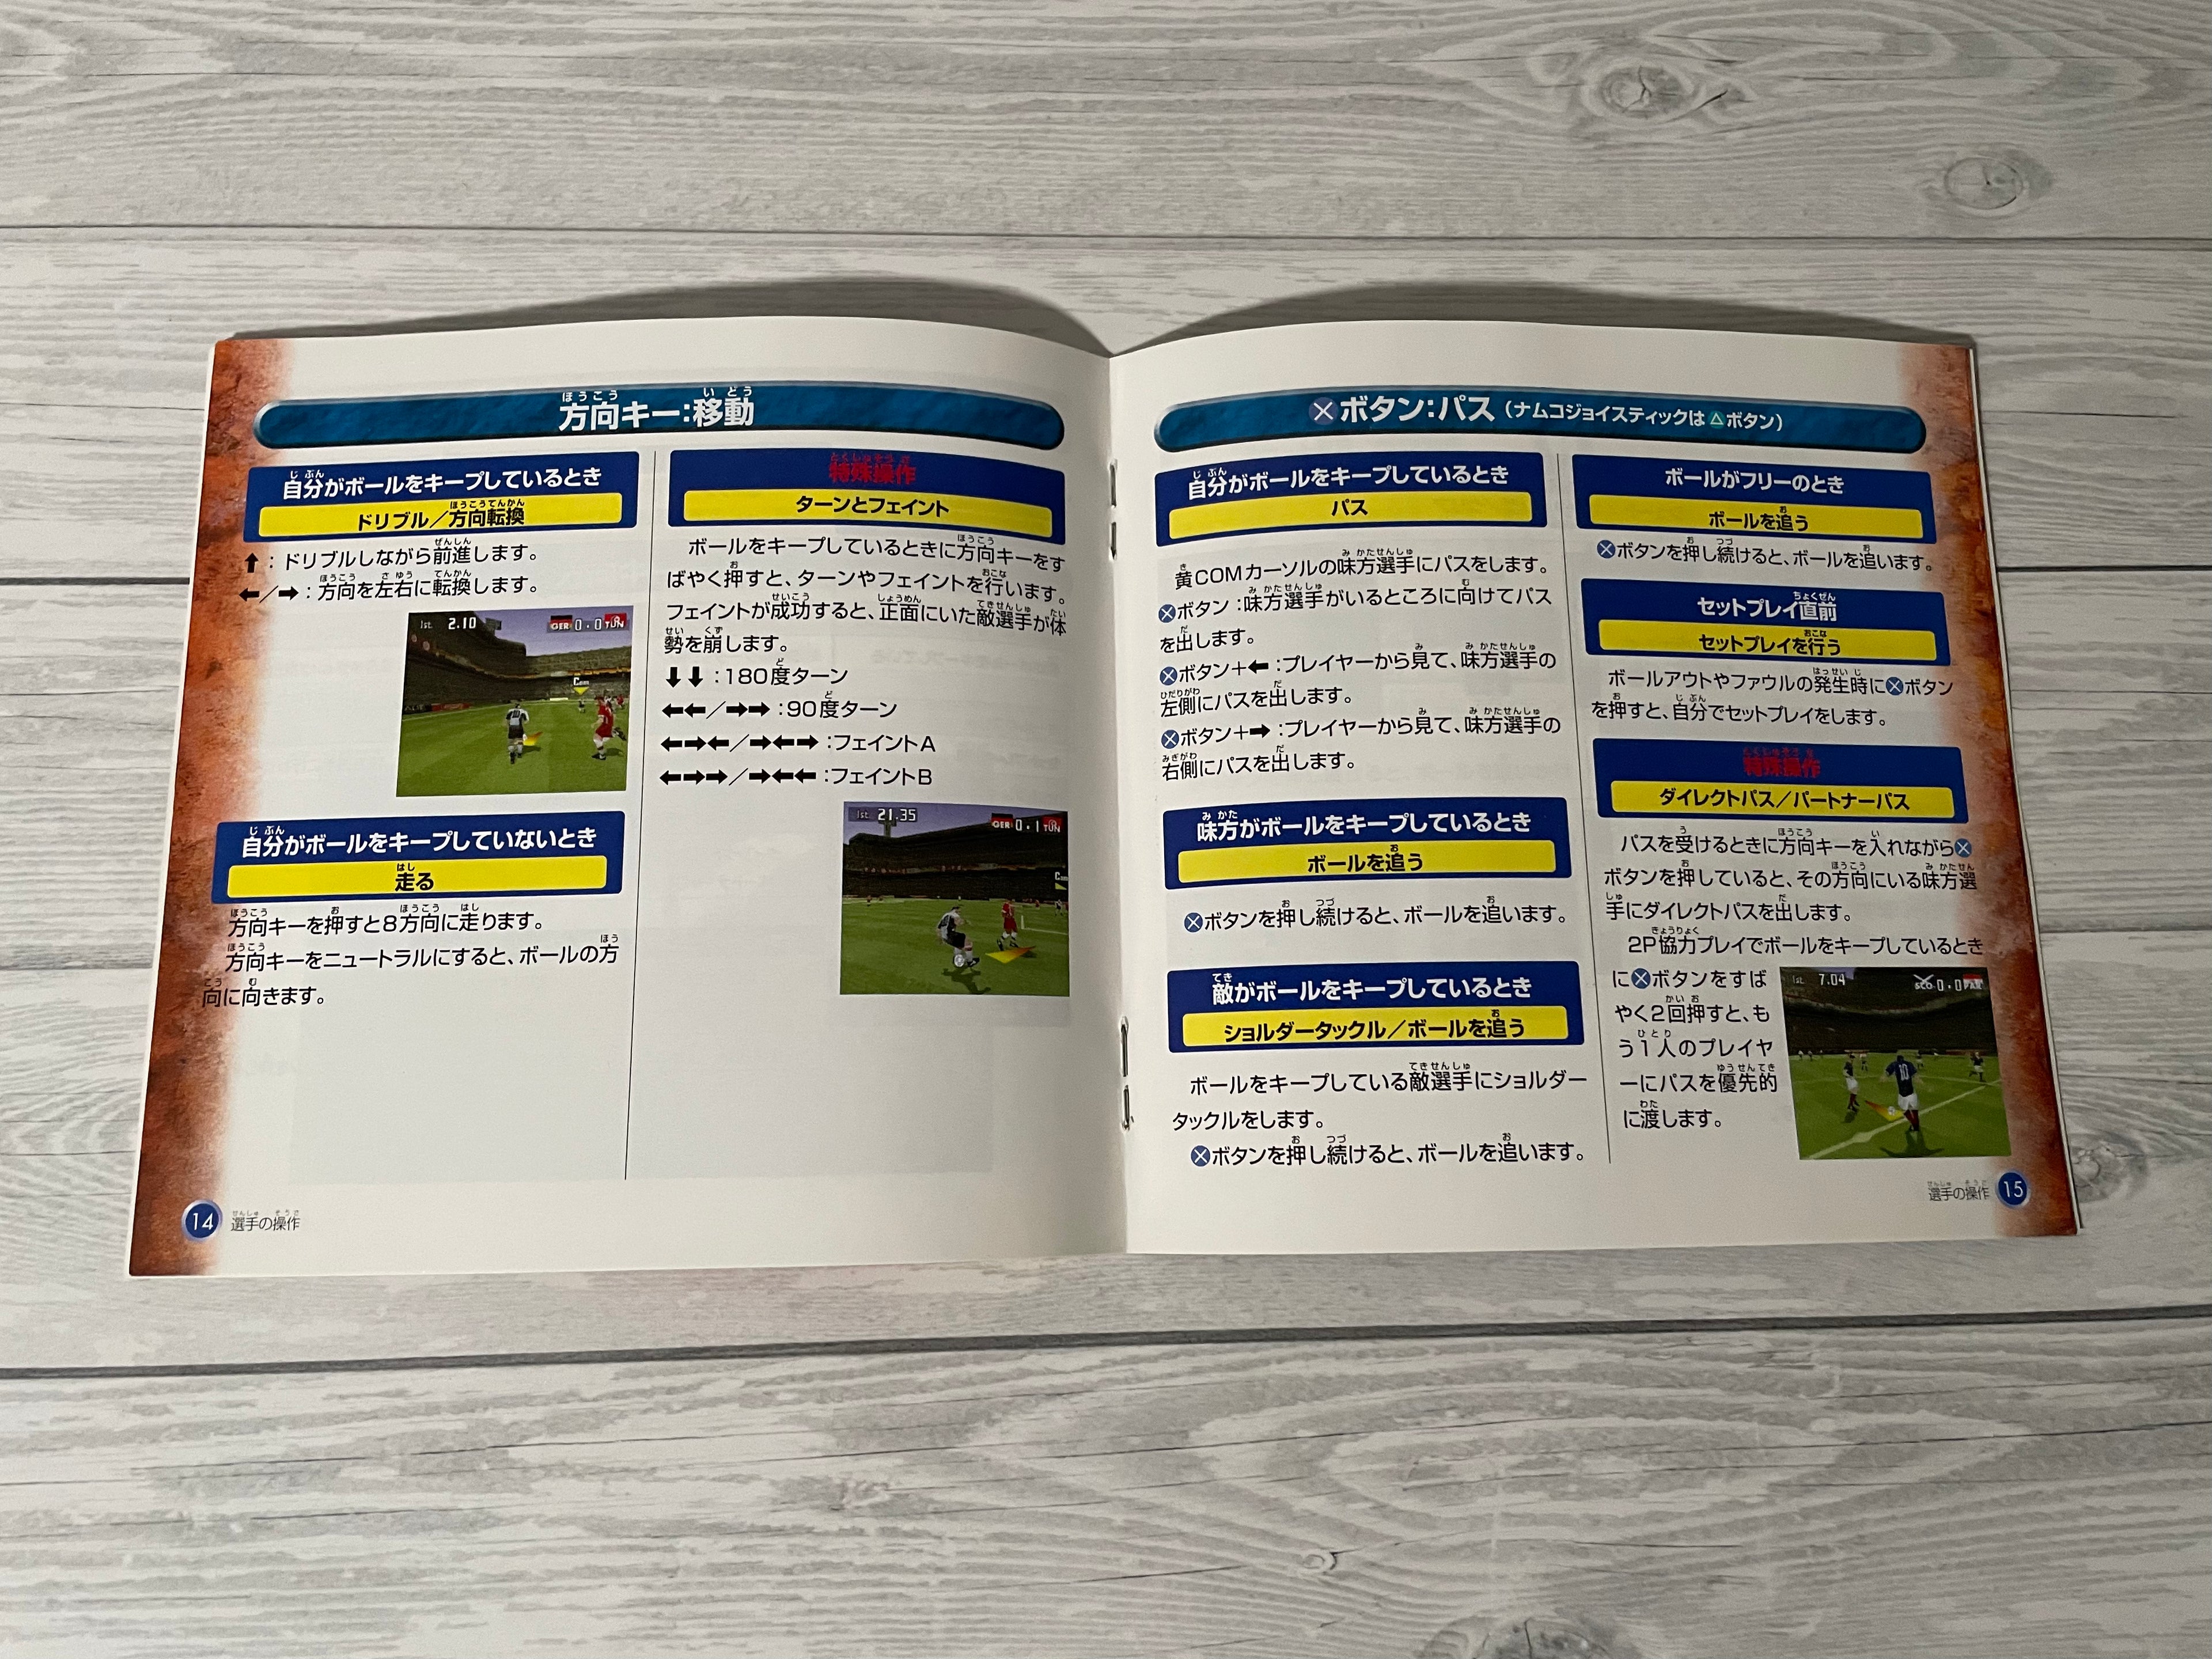 方向キー：移動
自分がボールをキープしているとき
ドリブル／方向転換
⬆：ドリブルしながら前進します。
⬅／➡：方向を左右に転換します。
1st 2.10 GER 0 . 0 TUN
Com
自分がボールをキープしていないとき
走る
方向キーを押すと8方向に走ります。
方向キーをニュートラルにすると、ボールの方
向に向きます。
特殊操作
ターンとフェイント
ボールをキープしているときに方向キーをす
ばやく押すと、ターンやフェイントを行います。
フェイントが成功すると、正面にいた敵選手が体
勢を崩します。
⬇⬇：180度ターン
⬅⬅／➡➡：90度ターン
⬅➡⬅／➡⬅➡：フェイントA
⬅➡➡／➡⬅⬅：フェイントB
1st 21.35 GER 0 . 1 TUN
14 選手の操作
⊗ボタン：パス（ナムコジョイスティックは△ボタン）
自分がボールをキープしているとき
パス
黄COMカーソルの味方選手にパスをします。
⊗ボタン：味方選手がいるところに向けてパス
を出します。
⊗ボタン＋⬅：プレイヤーから見て、味方選手の
左側にパスを出します。
⊗ボタン＋➡：プレイヤーから見て、味方選手の
右側にパスを出します。
味方がボールをキープしているとき
ボールを追う
⊗ボタンを押し続けると、ボールを追います。
敵がボールをキープしているとき
ショルダータックル／ボールを追う
ボールをキープしている敵選手にショルダー
タックルをします。
⊗ボタンを押し続けると、ボールを追います。
ボールがフリーのとき
ボールを追う
⊗ボタンを押し続けると、ボールを追います。
セットプレイ直前
セットプレイを行う
ボールアウトやファウルの発生時に⊗ボタン
を押すと、自分でセットプレイをします。
特殊操作
ダイレクトパス／パートナーパス
パスを受けるときに方向キーを入れながら⊗
ボタンを押していると、その方向にいる味方選
手にダイレクトパスを出します。
2P協力プレイでボールをキープしているとき
に⊗ボタンをすば
やく2回押すと、も
う1人のプレイヤ
ーにパスを優先的
に渡します。
1st 7.04 SCO 0 . 0
選手の操作 15